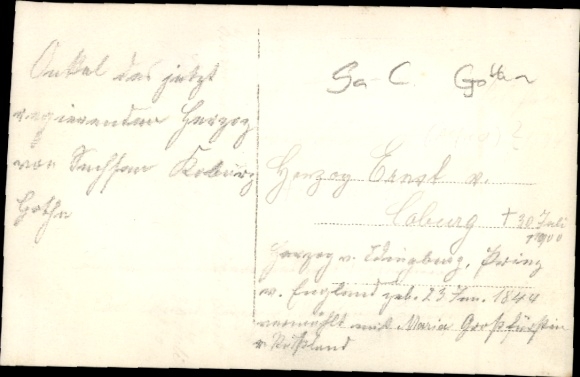 Onkel des jetzt
regierenden Herzog
von Sachsen Koburg
Gotha
Sa-C. Gotha
?
Herzog Ernst v.
Coburg † 30 Juli
1900
Herzog v. Edingburg, Prinz
v. England geb. 23 Jan. 1844
vermählt mit Maria Großfürstin
v. Rußland